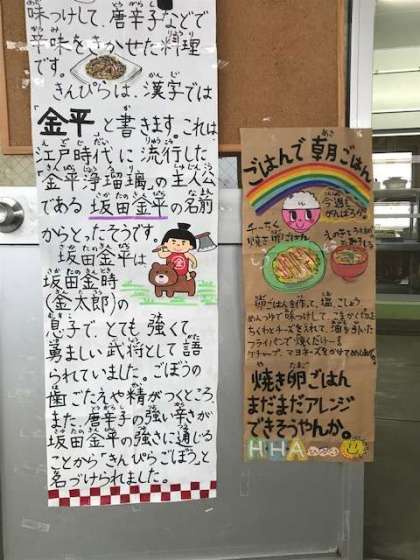 味つけして、唐辛子などで
辛味をきかせた料理
です。
きんぴらは、漢字では
「金平」と書きます。これは
江戸時代に流行した
「金平浄瑠璃」の主人公
である坂田金平の名前
からとったそうです。
坂田金平は
坂田金時
(金太郎)の
金
息子で、とても強くて
勇ましい武将として語
られていました。ごぼうの
歯ごたえや精がつくところ、
また、唐辛子の強い辛さが
坂田金平の強さに通じる
ことから「きんぴらごぼう」と
名づけられました。
ごはんで朝ごはん
今週も
がんばろう。
チーちく
焼き卵ごはん
卵ごはんを作って、塩、こしょう
めんつゆで味つけして、こまかくきざむ
ちくわとチーズを入れて、油を引いた
フライパンで焼くだけー!!
ケチャップ、マヨネーズをかけてめしあがれ。
焼き卵ごはん
まだまだアレンジ
できそうやんか。
HHA